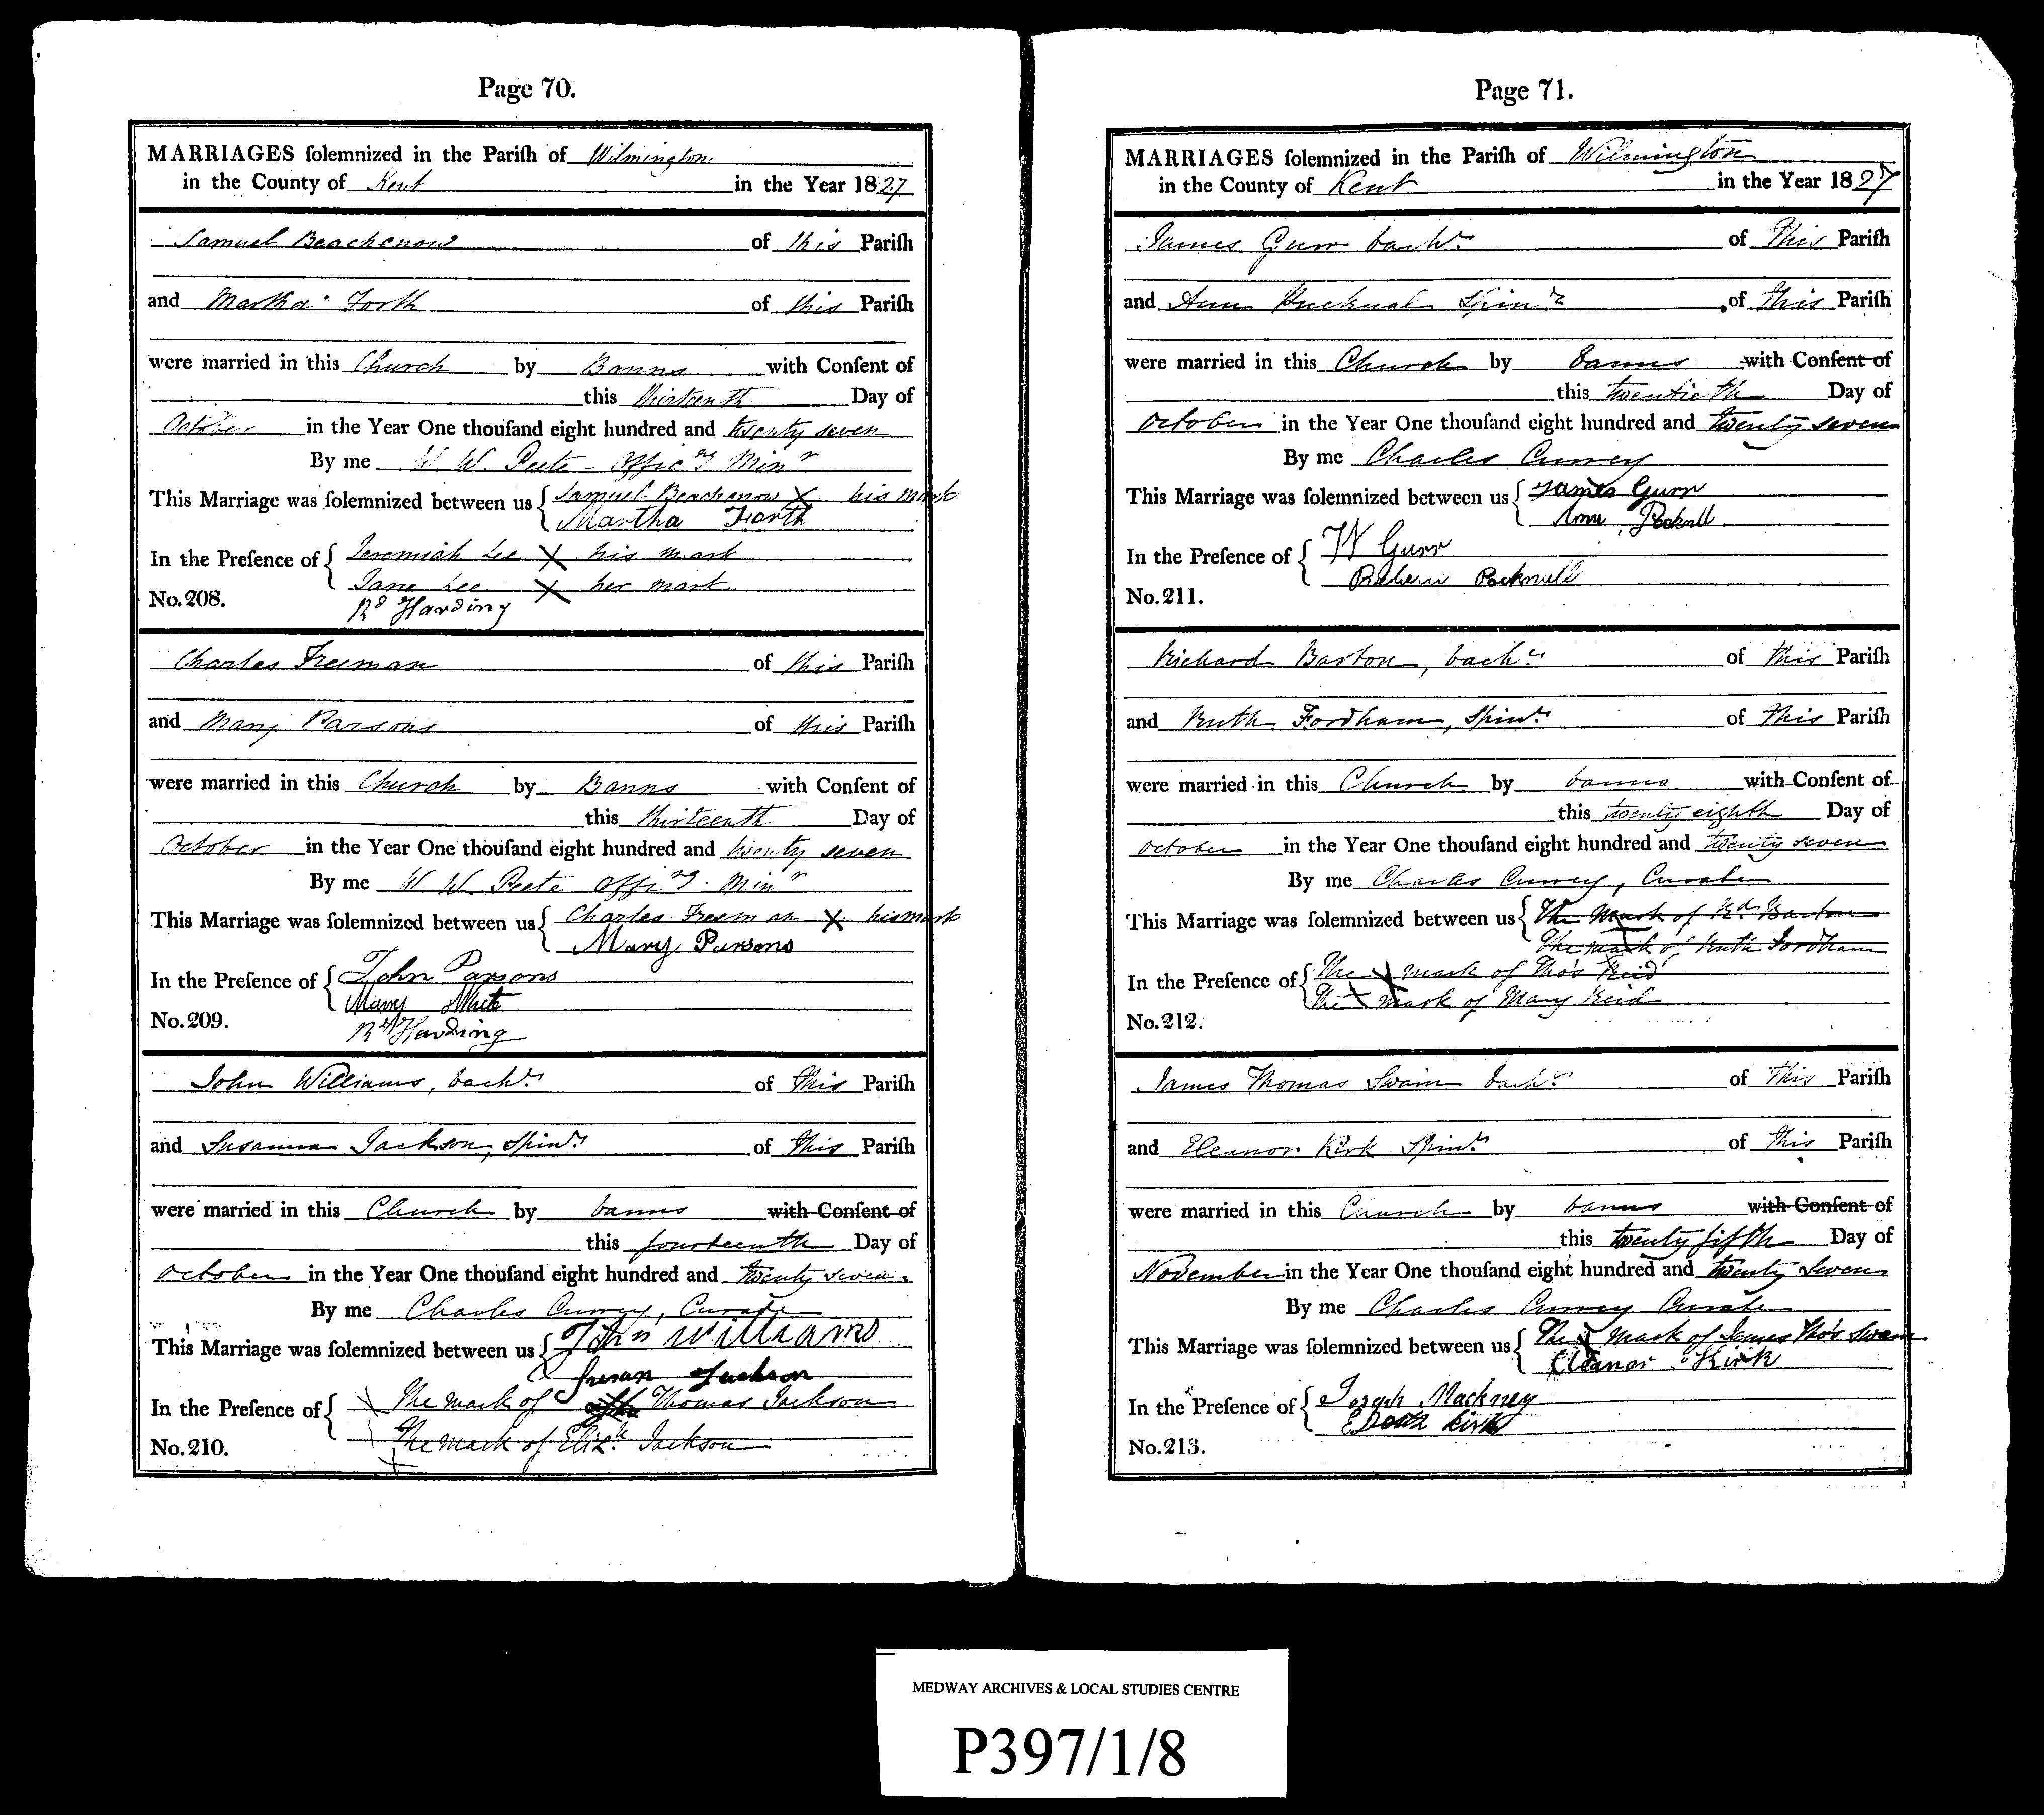 Page 70.
MARRIAGES ſolemnized in the Pariſh of Wilmington
in the County of Kent in the Year 1827
Samuel Beachenow of this Pariſh
and Martha Forth of this Pariſh
were married in this Church by Banns with Conſent of
this thirteenth Day of
October in the Year One thouſand eight hundred and twenty seven
By me W. W. Peete - Offic^ng Min^r
This Marriage was ſolemnized between us { Samuel Beachenow X his mark
Martha Forth
In the Preſence of { Jeremiah Lee X his mark
Jane Lee X her mark
No. 208.
R^d Harding
Charles Freeman of this Pariſh
and Mary Parsons of this Pariſh
were married in this Church by Banns with Conſent of
this thirteenth Day of
October in the Year One thouſand eight hundred and twenty seven
By me W. W. Peete Offi^ng. Min^r
This Marriage was ſolemnized between us { Charles Freeman X his mark
Mary Parsons
In the Preſence of { John Parsons
Mary
No. 209.
R^d Harding
John Williams, bach^r of this Pariſh
and Susanna Jackson, Spin^r of this Pariſh
were married in this Church by banns with Conſent of
this fourteenth Day of
October in the Year One thouſand eight hundred and twenty seven.
By me Charles Currey, Curate
This Marriage was ſolemnized between us { John Williams
Susan Jackson
In the Preſence of { X The mark of Thomas Jackson
The mark of Eliz^th Jackson
X
No. 210.
Page 71.
MARRIAGES ſolemnized in the Pariſh of Wilmington
in the County of Kent in the Year 1827
James Gurr bach^r of This Pariſh
and Ann Pucknal Spin^r of This Pariſh
were married in this Church by banns with Conſent of
this twentieth Day of
October in the Year One thouſand eight hundred and twenty seven
By me Charles Currey
This Marriage was ſolemnized between us { James Gurr
Ann
In the Preſence of { W Gurr
Pocknell
No. 211.
Richard Barton, bach^r of this Pariſh
and Ruth Fordham, Spin^r of This Pariſh
were married in this Church by banns with Conſent of
this twenty eighth Day of
October in the Year One thouſand eight hundred and twenty seven
By me Charles Currey, Curate
This Marriage was ſolemnized between us { The Mark of R^d Barton
The mark of Ruth Fordham
In the Preſence of { The X mark of Tho's Reid
The X mark of Mary Reid
No. 212.
James Thomas Swain bach^r of This Pariſh
and Eleanor Kirk Spin^r of This Pariſh
were married in this Church by banns with Conſent of
this twenty fifth Day of
November in the Year One thouſand eight hundred and twenty Seven
By me Charles Currey Curate
This Marriage was ſolemnized between us { The X mark of James Tho's Swain
Eleanor Kirk
In the Preſence of { Joseph Mackney
Kirk
No. 213.
MEDWAY ARCHIVES & LOCAL STUDIES CENTRE
P397/1/8